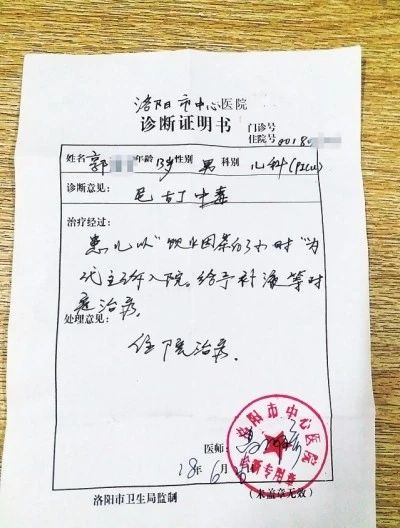 洛阳市中心医院
诊断证明书
门诊号
住院号 00180
姓名 郭 年龄 13岁 性别 男 科别 儿科(PICU)
诊断意见：
尼古丁中毒
治疗经过：
患儿以"饮 小时"为
代主诉入院。给予补液等对
症治疗。
处理意见：
住院治疗。
医师：
18年6月
洛阳市中心医院
诊断专用章
洛阳市卫生局监制
(未盖章无效)